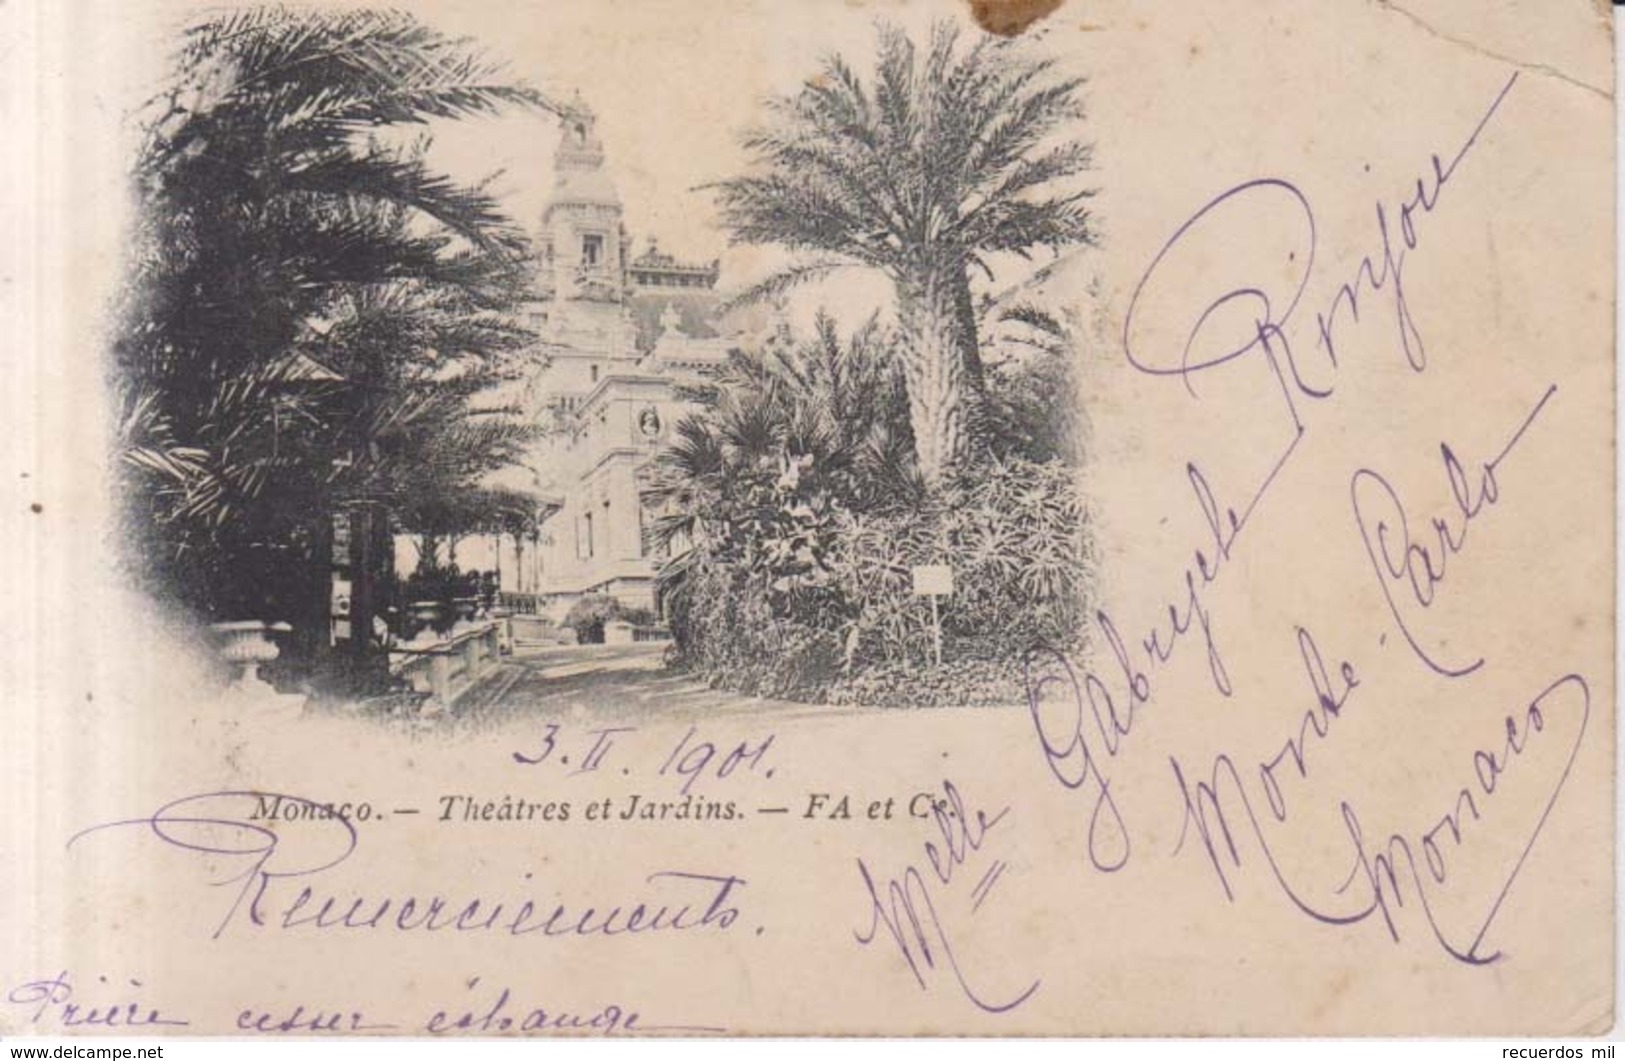 3. II. 1901.
Monaco. — Theâtres et Jardins. — FA et Cie.
Remerciements.
Prière cesser échange
Melle Gabrielle Rinjou
Monte-Carlo
Monaco
www.delcampe.net
recuerdos mil